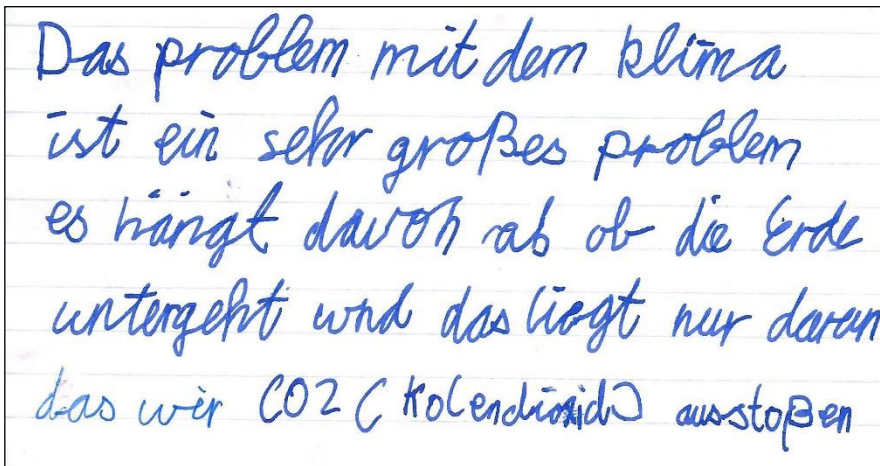 Das problem mit dem klima
ist ein sehr großes problem
es hängt davon ab ob die Erde
untergeht und das liegt nur daran
das wir CO2 (Kolendioxid) ausstoßen